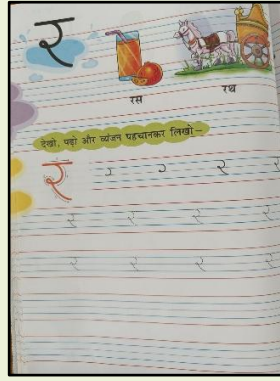 र
रस रथ
देखो, पढ़ो और व्यंजन पहचानकर लिखो–
र र र र
र र र र
र र र र